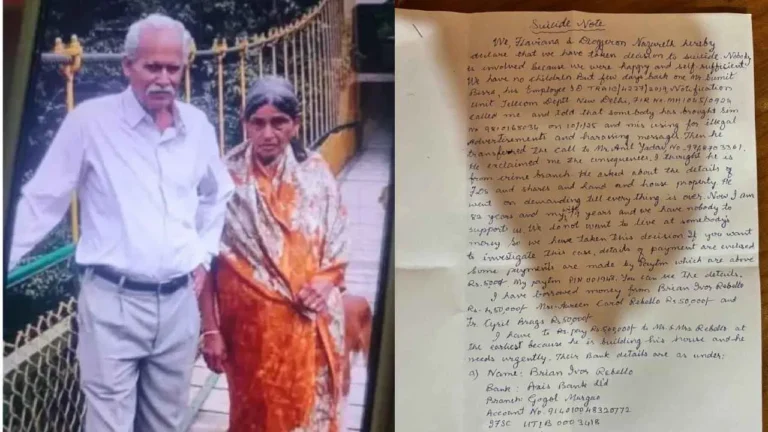 Suicide Note
We, Flaviana & Deogjeron Nazareth hereby
declare that we have taken decision to suicide. Nobody
is involved because we were happy and self-sufficient
We have no children. But few days back one Mr Sumit
Birra, his Employee ID Notification
unit Telecom Deptt New Delhi,
called me and told that somebody has brought Sim
no on 10/1/25 and mis using for illegal
Advertisements and harassing messages. Then he
transferred the Call to Mr Anil Yadav No.
He exclaimed me the consequences. I thought he is
from crime branch. He asked about the details of
and shares and land and house property. He
went on demanding till everything is over. Now I am
82 years and my years and we have nobody to
support us. We do not want to live at somebody's
money So we have taken this decision If you want
to investigate this case, details of payment are enclosed
Some payments are made by Paytm which are above
Rs. My paytm PIN You can see the details.
I have borrowed money from Brian Ivor Rebello
Rs. Mrs. Carol Rebello Rs 50,000/- and
Fr. Cyril Rs
I have to pay Rs to Mr & Mrs Rebello at
the earliest because he is building his house and he
needs urgently. Their Bank details are as under:
a) Name: Brian Ivor Rebello
Bank: Axis Bank Ltd
Branch: Gogol Margao
Account No.
IFSC UTIB